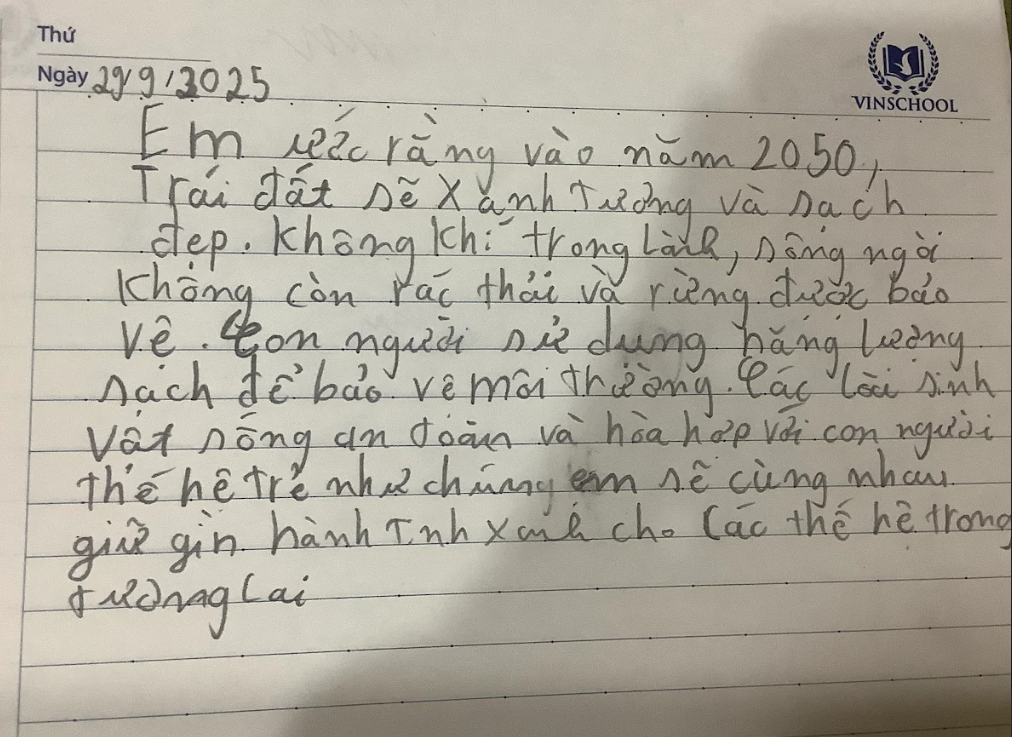 Thứ
Ngày 29/9/2025
VINSCHOOL
Em ước rằng vào năm 2050,
Trái đất sẽ xanh tương và sạch
đẹp. Không khí trong lành, sông ngòi
không còn rác thải và rừng được bảo
vệ. Con người sử dụng năng lượng
sạch để bảo vệ môi trường. Các lòai sinh
vật sống an toàn và hòa hợp với con người
thế hệ trẻ như chúng em sẽ cùng nhau
giữ gìn hành Tinh xanh cho các thế hệ trong
tương lai